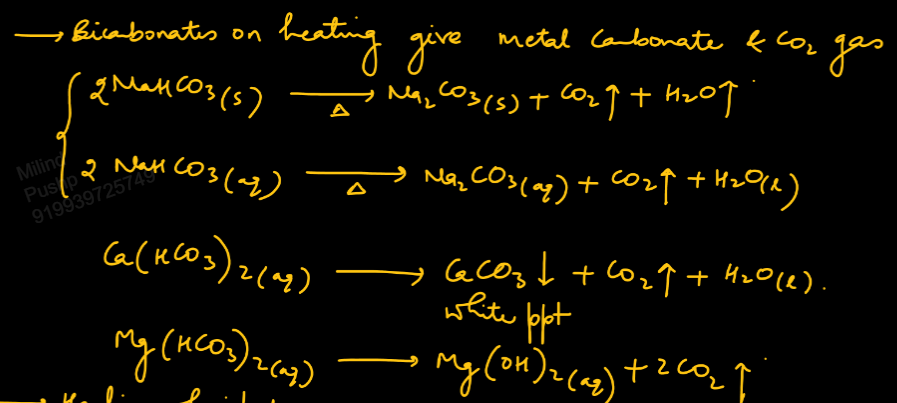 → Bicarbonates on heating give metal Carbonate & CO₂ gas
2NaHCO₃(s) —Δ→ Na₂CO₃(s) + CO₂↑ + H₂O↑
2 NaHCO₃(aq) —Δ→ Na₂CO₃(aq) + CO₂↑ + H₂O(l)
Milind
Pushp
919939725749
Ca(HCO₃)₂(aq) → CaCO₃↓ + CO₂↑ + H₂O(l).
white ppt
Mg(HCO₃)₂(aq) → Mg(OH)₂(aq) + 2CO₂↑